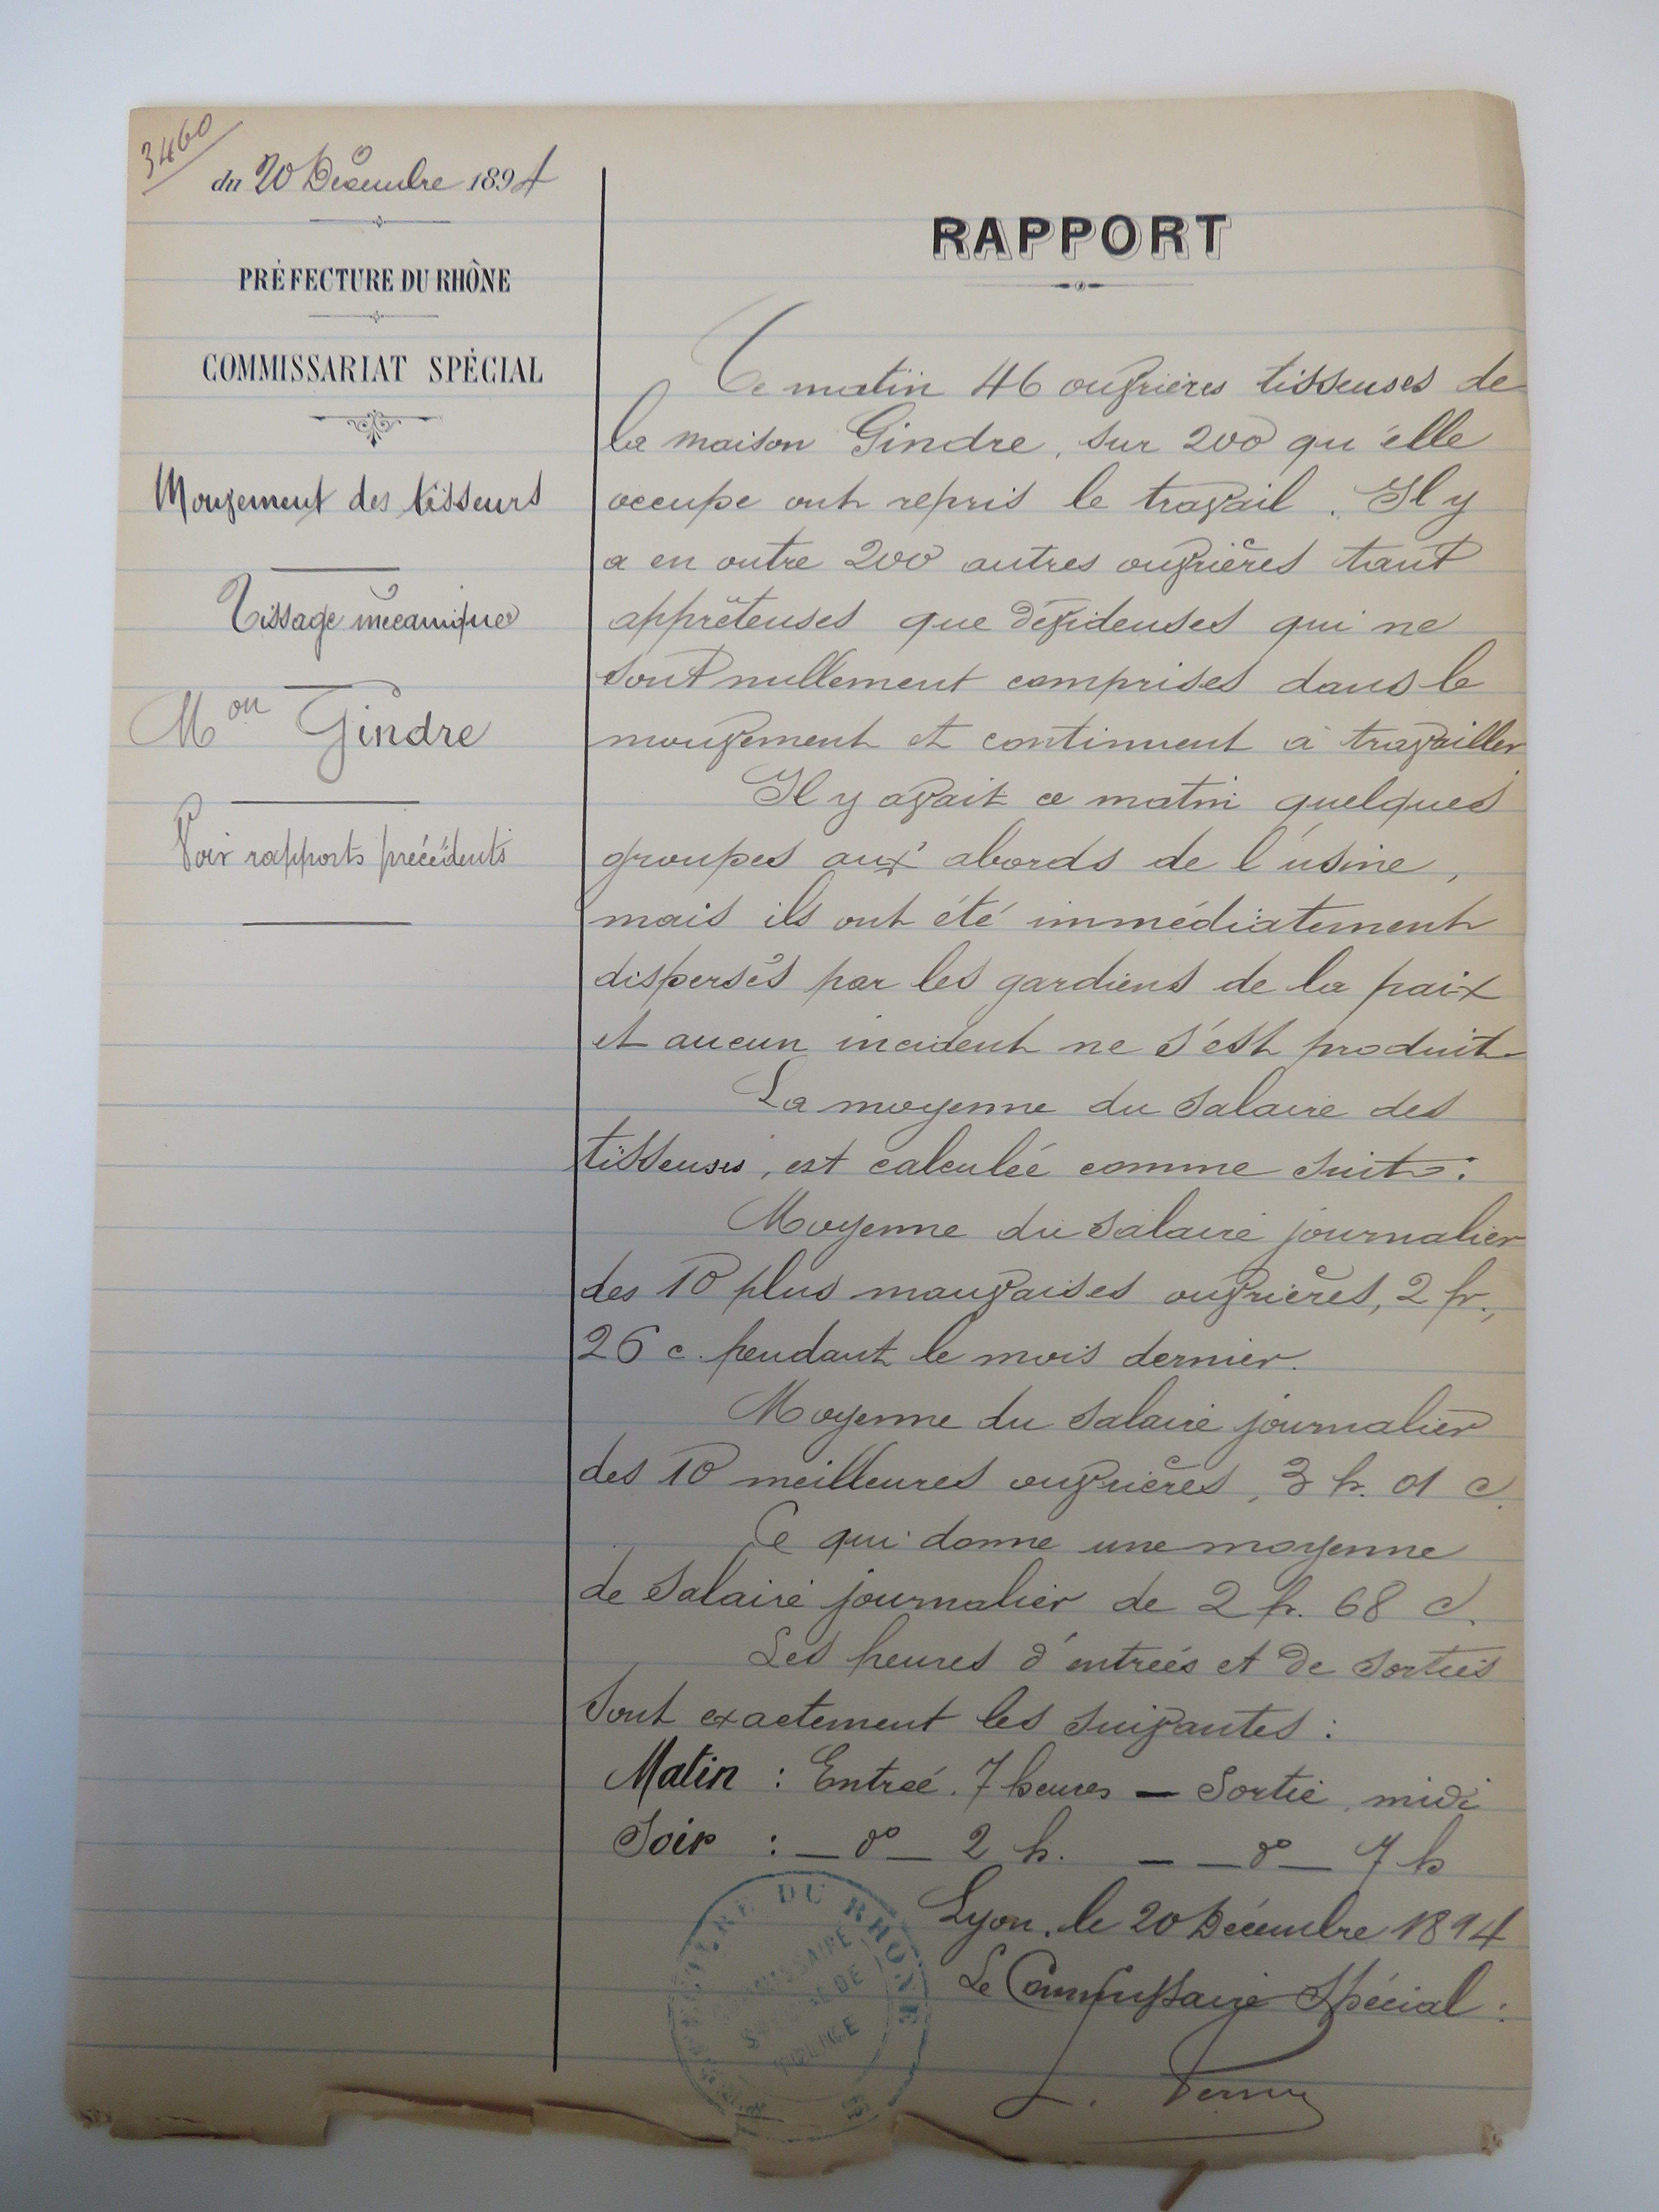 3460
du 20 Décembre 1894
PRÉFECTURE DU RHÔNE
COMMISSARIAT SPÉCIAL
Mouvement des tisseurs
Tissage mécanique
Mon Gindre
Voir rapports précédents
RAPPORT
Ce matin 46 ouvrières tisseuses de
la maison Gindre, sur 200 qu'elle
occupe ont repris le travail. Il y
a en outre 200 autres ouvrières tant
apprêteuses que dévideuses qui ne
sont nullement comprises dans le
mouvement et continuent à travailler.
Il y avait ce matin quelques
groupes aux abords de l'usine,
mais ils ont été immédiatement
dispersés par les gardiens de la paix
et aucun incident ne s'est produit.
La moyenne du salaire des
tisseuses, est calculée comme suit :
Moyenne du salaire journalier
des 10 plus mauvaises ouvrières, 2 fr.,
26 c. pendant le mois dernier.
Moyenne du salaire journalier
des 10 meilleures ouvrières, 3 fr. 01 c.
Ce qui donne une moyenne
de salaire journalier de 2 fr. 68 c.
Les heures d'entrées et de sorties
sont exactement les suivantes :
Matin : Entrée. 7 heures — Sortie, midi
Soir : — do — 2 h. — — do — 7 h
Lyon, le 20 Décembre 1894
Le Commissaire Spécial :
PRÉFECTURE DU RHÔNE
COMMISSAIRE
SPÉCIAL DE
POLICE